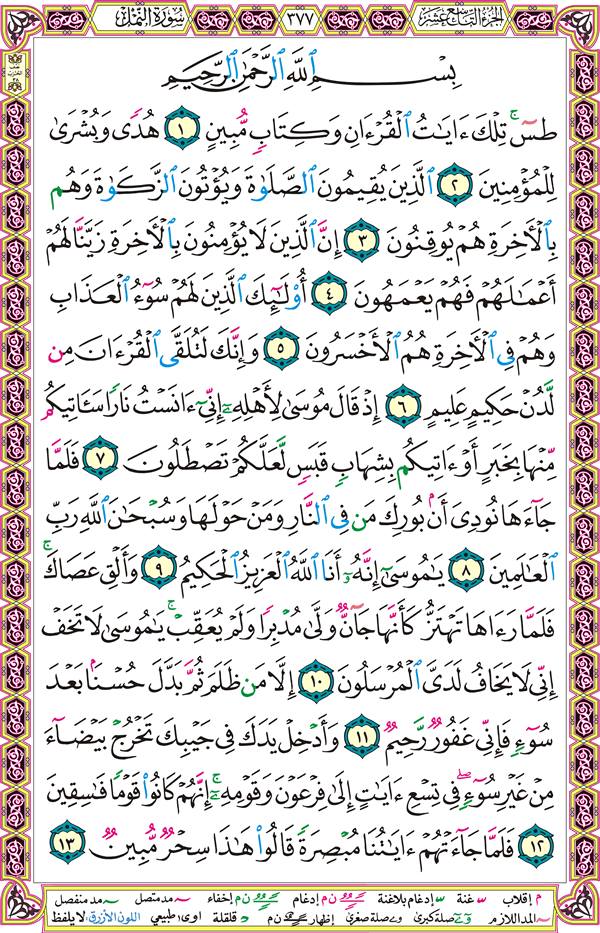 الجزء التاسع عشر
٣٧٧
سورة النمل
بِسْمِ ٱللَّهِ ٱلرَّحْمَٰنِ ٱلرَّحِيمِ
طسٓۚ تِلْكَ ءَايَاتُ ٱلْقُرْءَانِ وَكِتَابٍ مُّبِينٍ ١ هُدًى وَبُشْرَىٰ
لِلْمُؤْمِنِينَ ٢ ٱلَّذِينَ يُقِيمُونَ ٱلصَّلَوٰةَ وَيُؤْتُونَ ٱلزَّكَوٰةَ وَهُم
بِٱلْأَخِرَةِ هُمْ يُوقِنُونَ ٣ إِنَّ ٱلَّذِينَ لَا يُؤْمِنُونَ بِٱلْأَخِرَةِ زَيَّنَّا لَهُمْ
أَعْمَالَهُمْ فَهُمْ يَعْمَهُونَ ٤ أُوْلَٰٓئِكَ ٱلَّذِينَ لَهُمْ سُوٓءُ ٱلْعَذَابِ
وَهُمْ فِى ٱلْأَخِرَةِ هُمُ ٱلْأَخْسَرُونَ ٥ وَإِنَّكَ لَتُلَقَّى ٱلْقُرْءَانَ مِن
لَّدُنْ حَكِيمٍ عَلِيمٍ ٦ إِذْ قَالَ مُوسَىٰ لِأَهْلِهِۦٓ إِنِّىٓ ءَانَسْتُ نَارًا سَـَٔاتِيكُم
مِّنْهَا بِخَبَرٍ أَوْ ءَاتِيكُم بِشِهَابٍ قَبَسٍ لَّعَلَّكُمْ تَصْطَلُونَ ٧ فَلَمَّا
جَآءَهَا نُودِىَ أَنۢ بُورِكَ مَن فِى ٱلنَّارِ وَمَنْ حَوْلَهَا وَسُبْحَانَ ٱللَّهِ رَبِّ
ٱلْعَالَمِينَ ٨ يَامُوسَىٰٓ إِنَّهُۥٓ أَنَا ٱللَّهُ ٱلْعَزِيزُ ٱلْحَكِيمُ ٩ وَأَلْقِ عَصَاكَۚ
فَلَمَّا رَءَاهَا تَهْتَزُّ كَأَنَّهَا جَآنٌّ وَلَّىٰ مُدْبِرًا وَلَمْ يُعَقِّبْۚ يَامُوسَىٰ لَا تَخَفْ
إِنِّى لَا يَخَافُ لَدَىَّ ٱلْمُرْسَلُونَ ١٠ إِلَّا مَن ظَلَمَ ثُمَّ بَدَّلَ حُسْنًۢا بَعْدَ
سُوٓءٍ فَإِنِّى غَفُورٌ رَّحِيمٌ ١١ وَأَدْخِلْ يَدَكَ فِى جَيْبِكَ تَخْرُجْ بَيْضَآءَ
مِنْ غَيْرِ سُوٓءٍۖ فِى تِسْعِ ءَايَاتٍ إِلَىٰ فِرْعَوْنَ وَقَوْمِهِۦٓۚ إِنَّهُمْ كَانُوا۟ قَوْمًا فَاسِقِينَ
١٢ فَلَمَّا جَآءَتْهُمْ ءَايَاتُنَا مُبْصِرَةً قَالُوا۟ هَاذَا سِحْرٌ مُّبِينٌ ١٣
إقلاب غنة إدغام بلاغنة ن م إدغام ن م إخفاء مد متصل مد منفصل
المد اللازم صلة كبرى صلة صغرى إظهار ن م قلقلة اوى: طبيعي اللون الأزرق: لا يلفظ